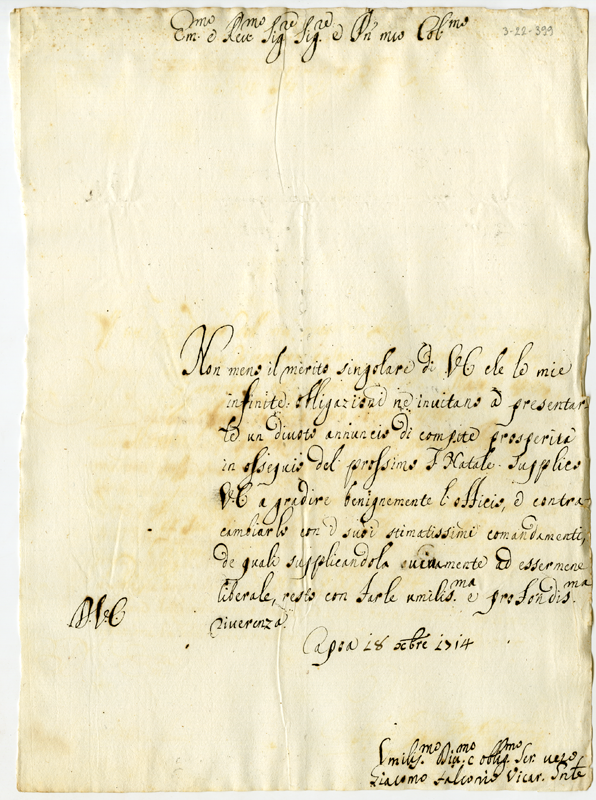 Em.mo e Rev.mo Sig.re Sig.re e Pn mio Col.mo
3-22-399
Non meno il merito singolare di V.E che le mie
infinite obligazioni ne invitano à presentar
le un divoto annuncio di compite prosperità
in ossequio del prossimo S. Natale. Supplico
V.E a gradire benignemente l'officio, è contra
cambiarlo con i suoi stimatissimi comandamenti,
de quali supplicandola vivamente ad essermene
liberale, resto con farle umilis.ma e profondis.ma
riverenza.
D.V.E
Capoa 18 xbre 1714
Umilis.mo Div.mo e oblig.mo Ser. vero
Giacomo Falconio Vicar.